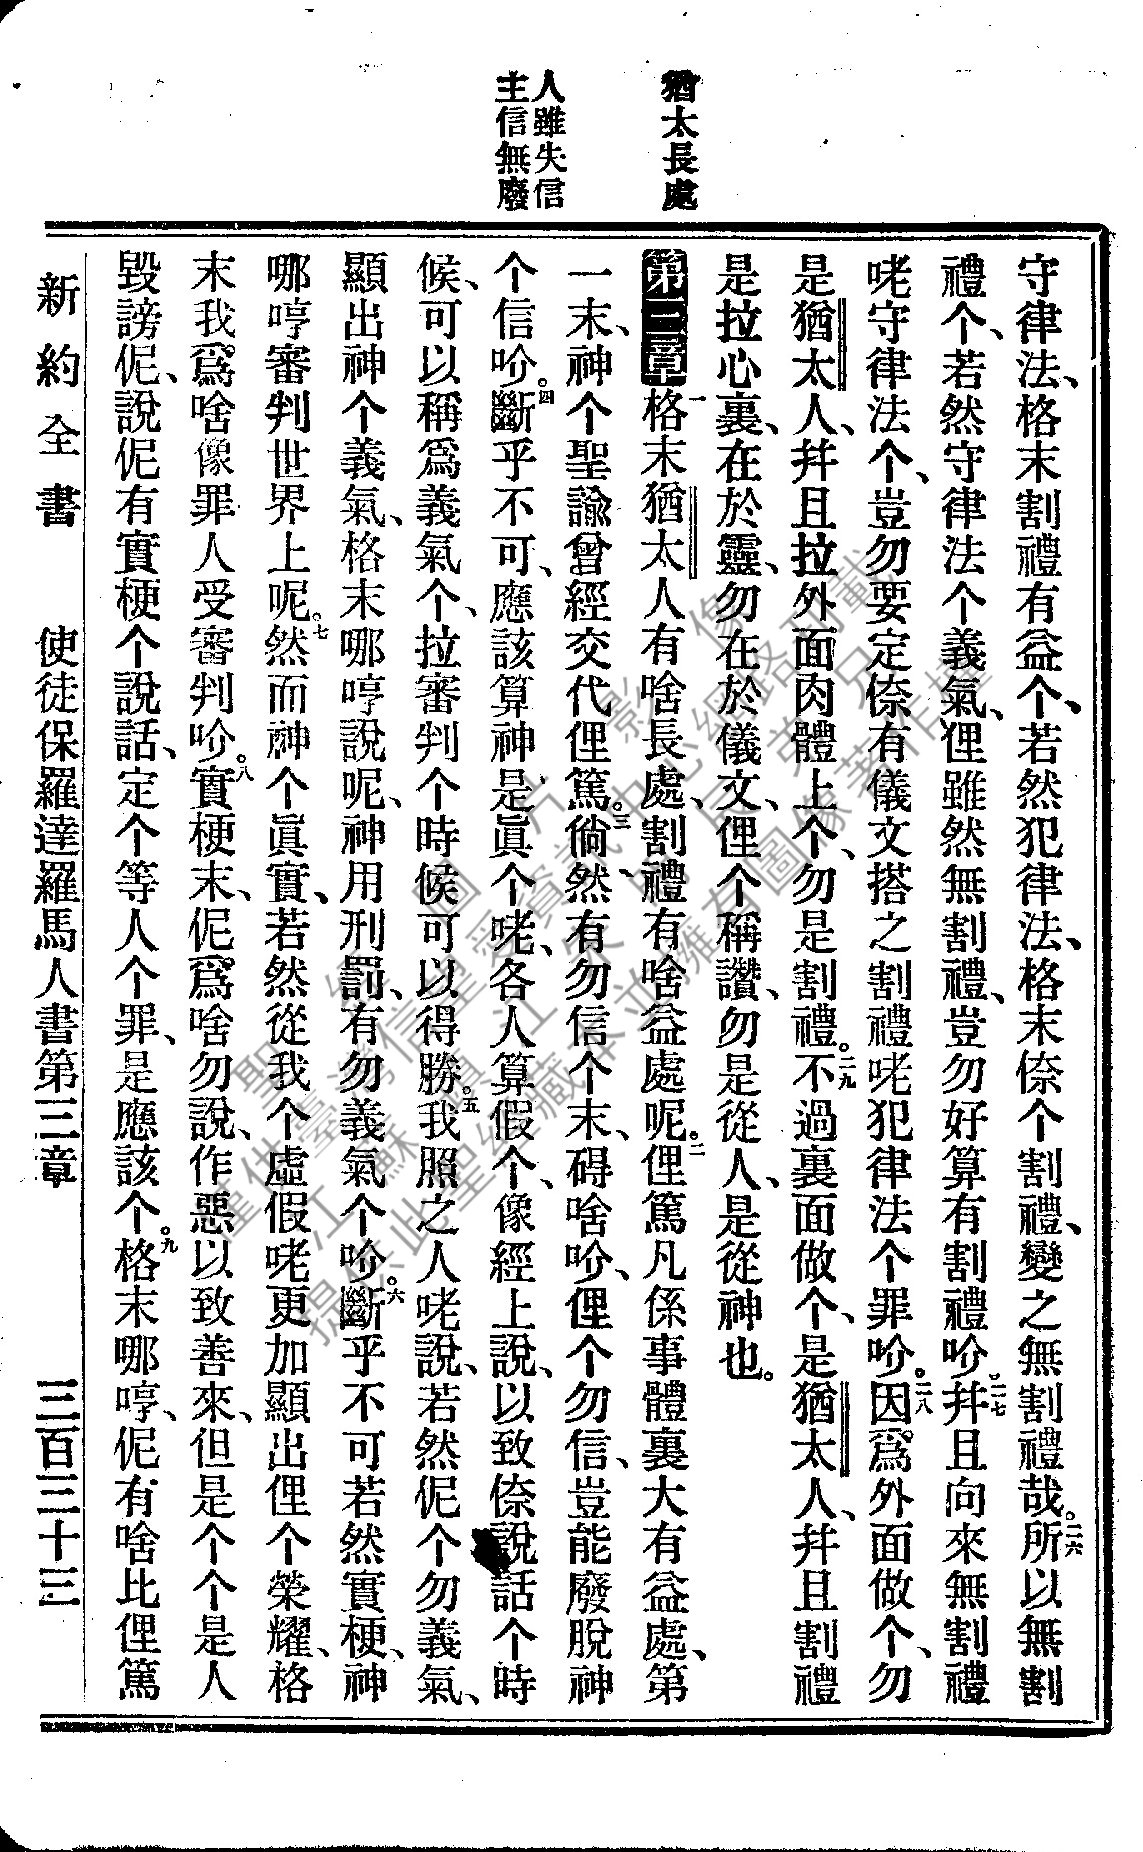 猶太長處
人雖失信
主信無廢
守律法、格末割禮有益个、若然犯律法、格末倷个割禮、變之無割禮哉。二六所以無割
禮个、若然守律法个義氣、俚雖然無割禮、豈勿好算有割禮吤。二七幷且向來無割禮
咾守律法个、豈勿要定倷有儀文搭之割禮咾犯律法个罪吤。二八因爲外面做个、勿
是猶太人、幷且拉外面肉體上个、勿是割禮。二九不過裏面做个、是猶太人、幷且割禮
是拉心裏、在於靈、勿在於儀文、俚个稱讚、勿是從人、是從神也。
第三章一格末猶太人有啥長處、割禮有啥益處呢。二俚篤凡係事體裏大有益處、第
一末、神个聖諭、曾經交代俚篤。三倘然有勿信个末、碍啥吤、俚个勿信、豈能廢脫神
个信吤。四斷乎不可、應該算神是眞个咾、各人算假个、像經上說、以致倷說話个時
候、可以稱爲義氣个、拉審判个時候可以得勝。五我照之人咾說、若然伲个勿義氣、
顯出神个義氣、格末哪哼說呢、神用刑罰、有勿義氣个吤。六斷乎不可若然實梗、神
哪哼審判世界上呢。七然而神个眞實、若然從我个虛假咾更加顯出俚个榮耀、格
末我爲啥像罪人受審判吤。八實梗末、伲爲啥勿說、作惡以致善來、但是个个是人
毀謗伲、說伲有實梗个說話、定个等人个罪、是應該个。九格末哪哼、伲有啥比俚篤
新約全書 使徒保羅達羅馬人書第三章 三百三十三